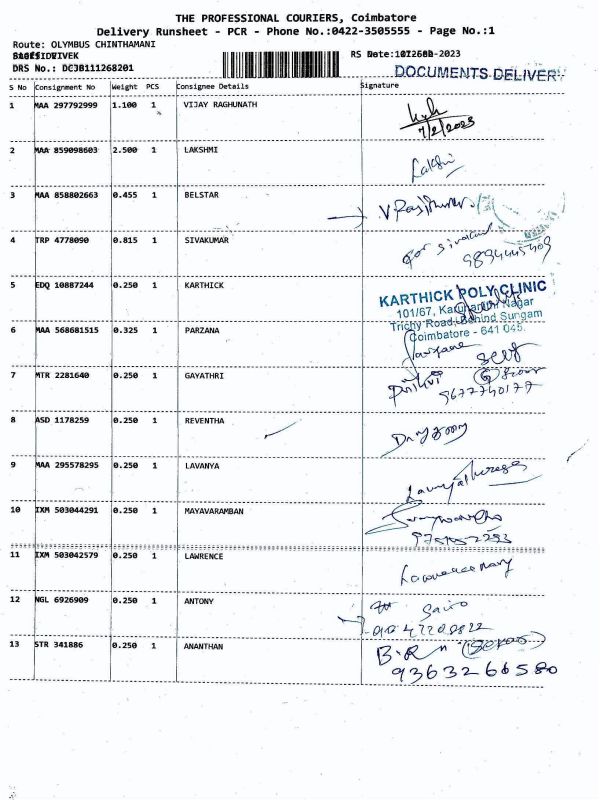 THE PROFESSIONAL COURIERS, Coimbatore
Delivery Runsheet - PCR - Phone No.:0422-3505555 - Page No.:1
Route: OLYMBUS CHINTHAMANI
DRS No.: DCJB111268201
DOCUMENTS DELIVERY
S No Consignment No Weight PCS Consignee Details Signature
1 MAA 297792999 1.100 1 VIJAY RAGHUNATH
7/2/2023
2 MAA 859098603 2.500 1 LAKSHMI Lakshi
3 MAA 858802663 0.455 1 BELSTAR
4 TRP 4778090 0.815 1 SIVAKUMAR for sivakumar
5 EDQ 10887244 0.250 1 KARTHICK
KARTHICK POLY CLINIC
101/67, Karunanithi Nagar
Trichy Road, Behind Sungam
Coimbatore - 641 045.
6 MAA 568681515 0.325 1 PARZANA
self
7 MTR 2281640 0.250 1 GAYATHRI
9677740177
8 ASD 1178259 0.250 1 REVENTHA
9 MAA 295578295 0.250 1 LAVANYA
10 IXM 503044291 0.250 1 MAYAVARAMBAN
11 IXM 503042579 0.250 1 LAWRENCE
12 NGL 6926909 0.250 1 ANTONY
13 STR 341886 0.250 1 ANANTHAN
9363266580